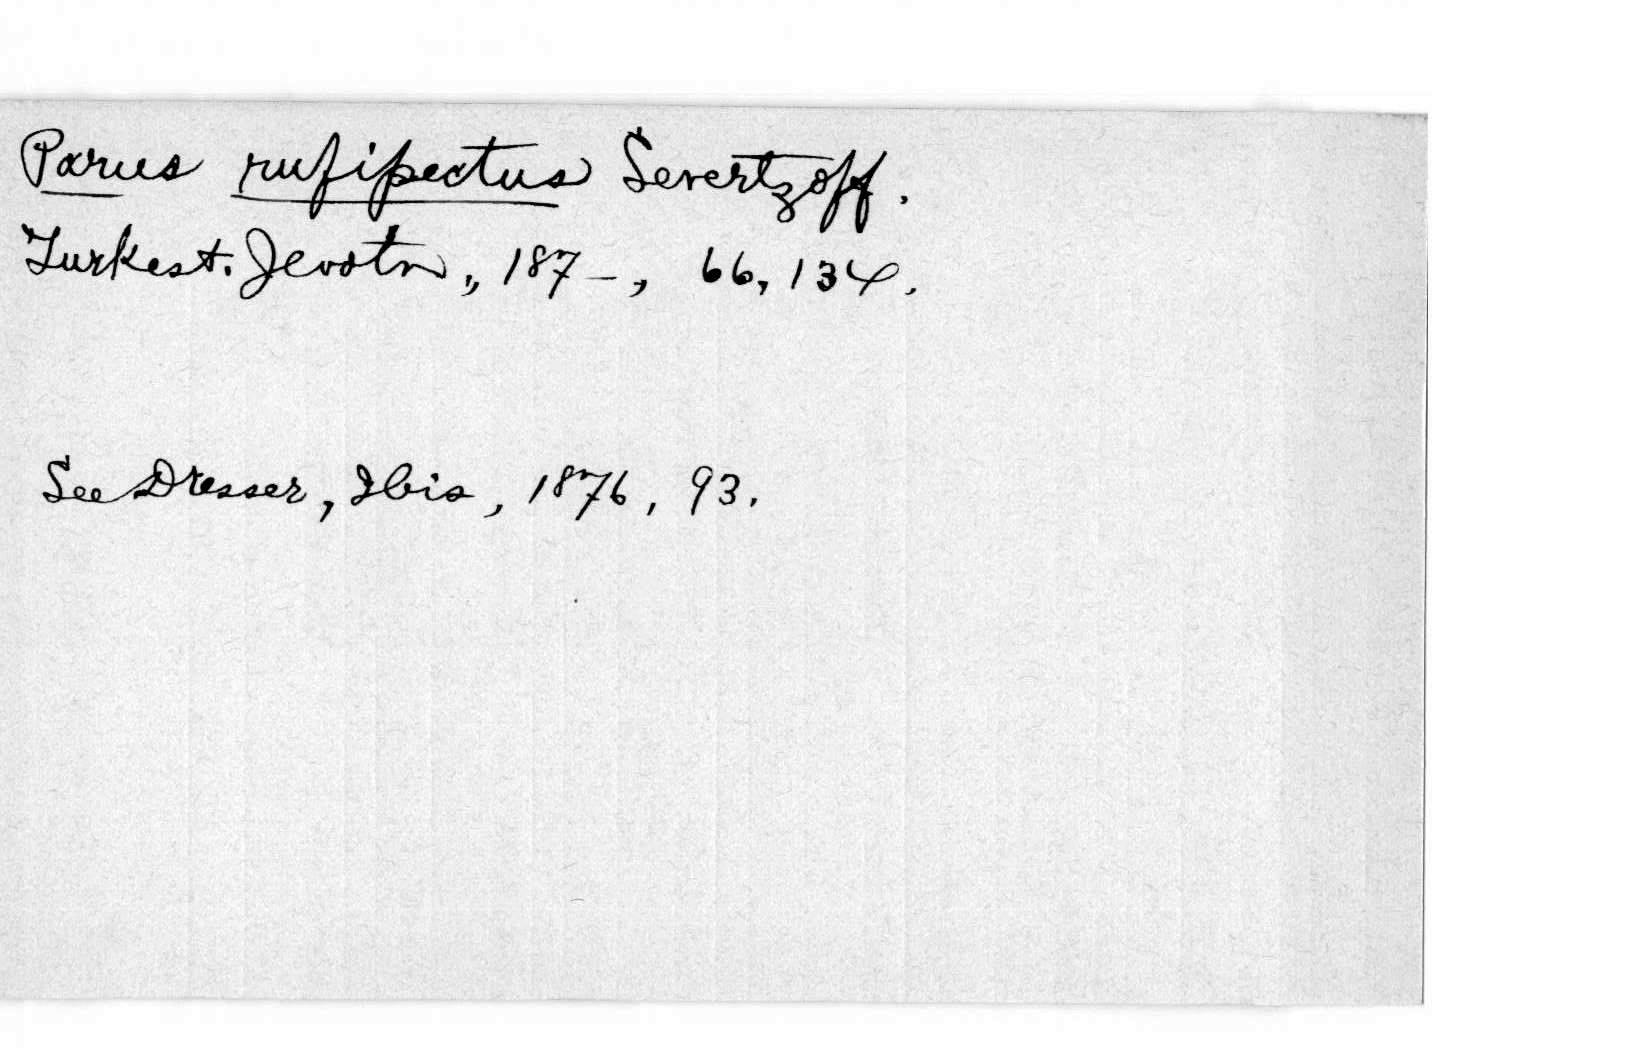 Parus rufipectus Severtzoff.
Turkest. Jevotn., 187-, 66, 134.
See Dresser, Ibis, 1876, 93.